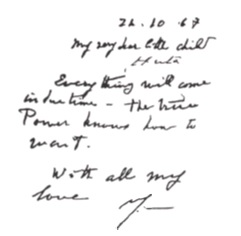 24.10.67
My very dear little child
Huta
Everything will come
in due time – the True
Power knows how to
wait.
With all my
love M.—